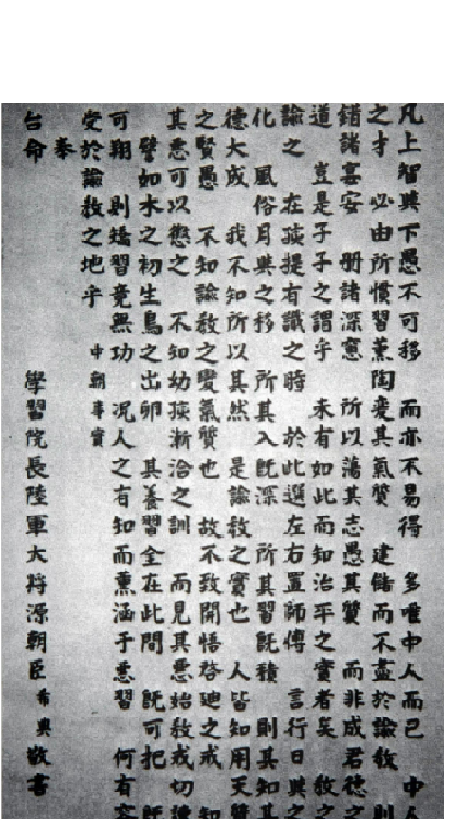 凡上智與下愚不可移 而亦不易得 多唯中人而已 中人
之才 必由所慣習薰陶變其氣質 建儲而不盡於諭教 則
錯諸宴安 冊諸深窻 所以蕩其志愚其質 而非成君德之
道 豈是子子之謂乎 未有如此而知治平之實者矣 教之
諭之 在孩提有識之時 於此選左右置師傅 言行日與之
化 風俗月與之移 所其入既深 所其習既積 則其知其
德大成 我不知所以其然 是諭教之實也 人皆知用天質
之賢愚 不知諭教之變氣質也 故不致開悟啓迪之戒 知
其惡可以懲之 不知幼孩漸洽之訓 而見其惡始教戒切
譬如水之初生鳥之出卵 其養習全在此間 既可把 既
可翔 則矯習竟無功 況人之有知而薰涵于惡習 何有容
受於諭教之地乎 中朝事實
奉
台命 學習院長陸軍大將源朝臣希典敬書